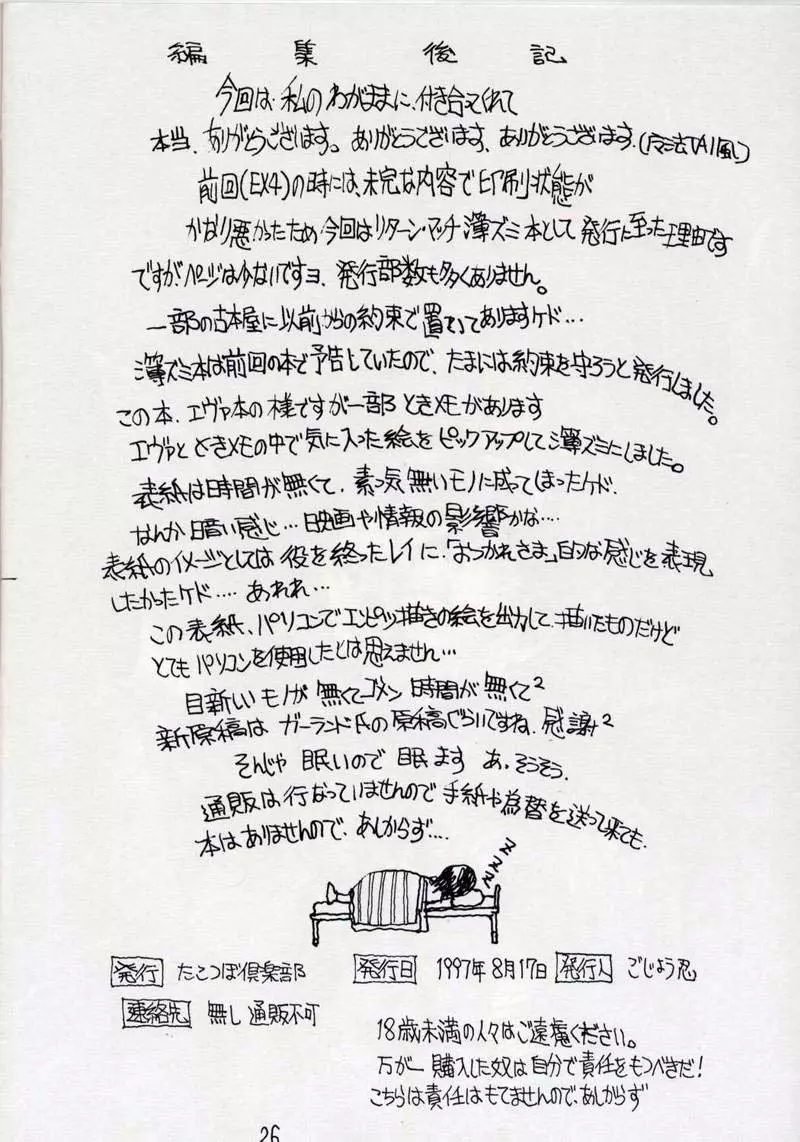 編集後記
今回は私のわがままに付き合ってくれて
本当、ありがとうございます。ありがとうございます、ありがとうございます。
前回(EX4)の時には、未完な内容で印刷状態が
かなり悪かったため今回はリターン・マッチ薄ズミ本として発行に至った理由です
ですが、ページは少ないですヨ、発行部数も多くありません。
一部の古本屋に以前からの約束で置いてありますケド…
薄ズミ本は前回の本で予告していたので、たまには約束を守ろうと発行しました。
この本、エヴァ本の様ですが一部ときメモがあります
エヴァとときメモの中で気に入った絵をピックアップして薄ズミにしました。
表紙は時間が無くて、素っ気無いモノに成ってしまったケド、
なんか暗い感じ…映画や情報の影響かな….
表紙のイメージとしては役を終ったレイに、「おつかれさま」的な感じを表現
したかったケド….あれれ…
この表紙、パソコンでエンピツ描きの絵を出力して、描いたものだけど
とてもパソコンを使用したとは思えません…
目新しいモノが無くてゴメン時間が無くて²
新原稿はガーランド氏の原稿ぐらいですね、感謝²
そんじゃ眠いので眠ますあ。そうそう、
通販は行なっていませんので手紙や為替を送って来ても、
本はありませんので、あしからず….
ZZZZ
発行 たこつぼ倶楽部 発行日 1997年8月17日 発行人 ごじょう忍
連絡先 無し 通販不可
18歳未満の人々はご遠慮ください。
万が一購入した奴は自分で責任をもつべきだ!
こちらは責任はもてませんので、あしからず
26